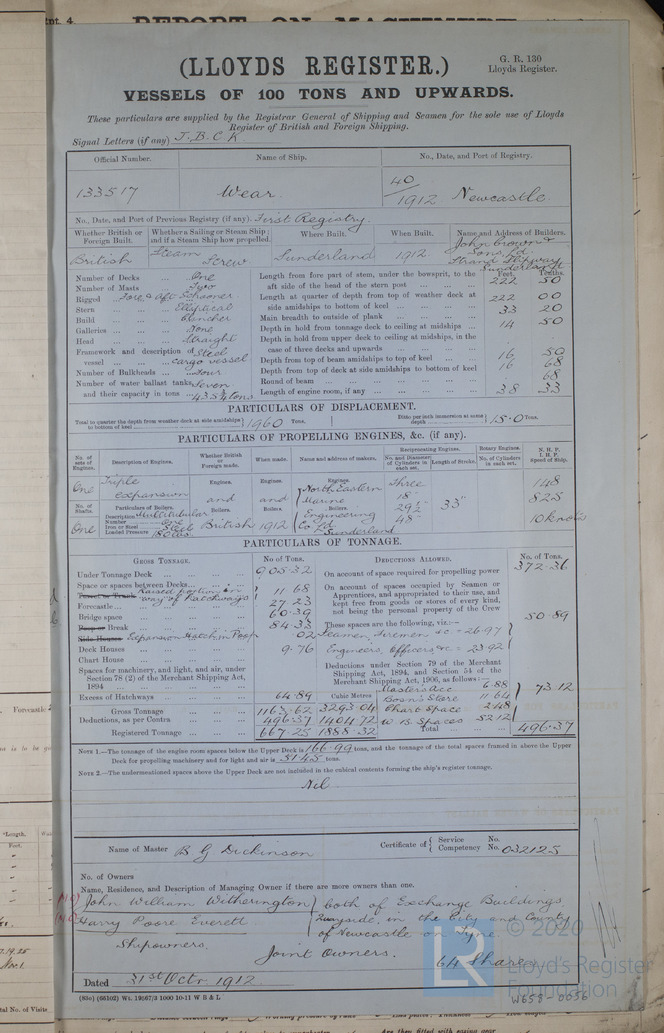 (LLOYDS REGISTER.)
G. R. 130
Lloyds Register.
VESSELS OF 100 TONS AND UPWARDS.
These particulars are supplied by the Registrar General of Shipping and Seamen for the sole use of Lloyds
Register of British and Foreign Shipping.
Signal Letters (if any) J. B. C. K
Official Number. Name of Ship. No., Date, and Port of Registry.
133517 Wear. 40/1912 Newcastle.
No., Date, and Port of Previous Registry (if any). First Registry.
Whether British or Foreign Built. Whether a Sailing or Steam Ship; and if a Steam Ship how propelled. Where Built. When Built. Name and Address of Builders.
British Steam Screw Sunderland 1912. John Crown & Sons, Ld Strand Slipway Sunderland
Feet. Tenths.
Number of Decks One
Number of Masts Two
Rigged Fore & Aft Schooner
Stern Elliptical
Build Clencher
Galleries None
Head Straight
Framework and description of vessel Steel cargo vessel
Number of Bulkheads Four
Number of water ballast tanks, Seven
and their capacity in tons 435¼ tons
Length from fore part of stem, under the bowsprit, to the
aft side of the head of the stern post 222 50
Length at quarter of depth from top of weather deck at
side amidships to bottom of keel 222 00
Main breadth to outside of plank 33 20
Depth in hold from tonnage deck to ceiling at midships 14 50
Depth in hold from upper deck to ceiling at midships, in the
case of three decks and upwards
Depth from top of beam amidships to top of keel 16 50
Depth from top of deck at side amidships to bottom of keel 16 68
Round of beam 68
Length of engine room, if any 38 33
PARTICULARS OF DISPLACEMENT.
Total to quarter the depth from weather deck at side amidships to bottom of keel 1960 Tons.
Ditto per inch immersion at same depth 15.0 Tons.
PARTICULARS OF PROPELLING ENGINES, &c. (if any).
No. of sets of Engines. Description of Engines. Whether British or Foreign made. When made. Name and address of makers. Reciprocating Engines. Rotary Engines. N. H. P. I. H. P. Speed of Ship.
No. and Diameter of Cylinders in each set. Length of Stroke. No. of Cylinders in each set.
One Triple expansion Engines. Engines. Engines. Three
North Eastern 18" 148
No. of Shafts. Particulars of Boilers. and and Marine 29½" 33" 825
Description Multitubular Boilers. Boilers. Engineering 48" 10 knots
Number One
One Iron or Steel Steel British 1912 Co Ld Sunderland
Loaded Pressure 180 lbs.
PARTICULARS OF TONNAGE.
GROSS TONNAGE. No of Tons. DEDUCTIONS ALLOWED. No. of Tons.
Under Tonnage Deck 905.32
Space or spaces between Decks
Raised portion in way of Hatchways 11 68
Forecastle 27 23
Bridge space 60.39
Poop or Break 84.33
Side Houses Expansion Hatch in Poop .02
Deck Houses 9.76
Chart House
Spaces for machinery, and light, and air, under
Section 78 (2) of the Merchant Shipping Act,
1894
Excess of Hatchways 64.89
Cubic Metres
Gross Tonnage 1163.62 3293.04
Deductions, as per Contra 496.37 1404.72
Registered Tonnage 667.25 1888.32
On account of space required for propelling power 372.36
On account of spaces occupied by Seamen or
Apprentices, and appropriated to their use, and
kept free from goods or stores of every kind,
not being the personal property of the Crew 50.89
These spaces are the following, viz.:—
Seamen, Firemen &c = 26.97
Engineers, Officers, &c = 23.92
Deductions under Section 79 of the Merchant
Shipping Act, 1894, and Section 54 of the
Merchant Shipping Act, 1906, as follows:—
Masters Acc 6.88
Bosn's Store 11.64
Chart Space 2.48
W. B. Spaces 52.12
73.12
Total 496.37
NOTE 1.—The tonnage of the engine room spaces below the Upper Deck is 166.99 tons, and the tonnage of the total spaces framed in above the Upper
Deck for propelling machinery and for light and air is 31.45 tons.
NOTE 2.—The undermentioned spaces above the Upper Deck are not included in the cubical contents forming the ship's register tonnage.
Nil
Name of Master B G Dickinson Certificate of Service No. Competency No. 032125
No. of Owners
Name, Residence, and Description of Managing Owner if there are more owners than one.
John William Witherington both of Exchange Buildings,
Harry Poore Everett Quayside, in the City and County
of Newcastle on Tyne
Shipowners, Joint Owners. 64 Shares
Dated 31st Octr. 1912.
(83o) (66102) Wt. 12667/3 1000 10-11 W B & L
© 2020
LR
Lloyd's Register
Foundation
W658-0056